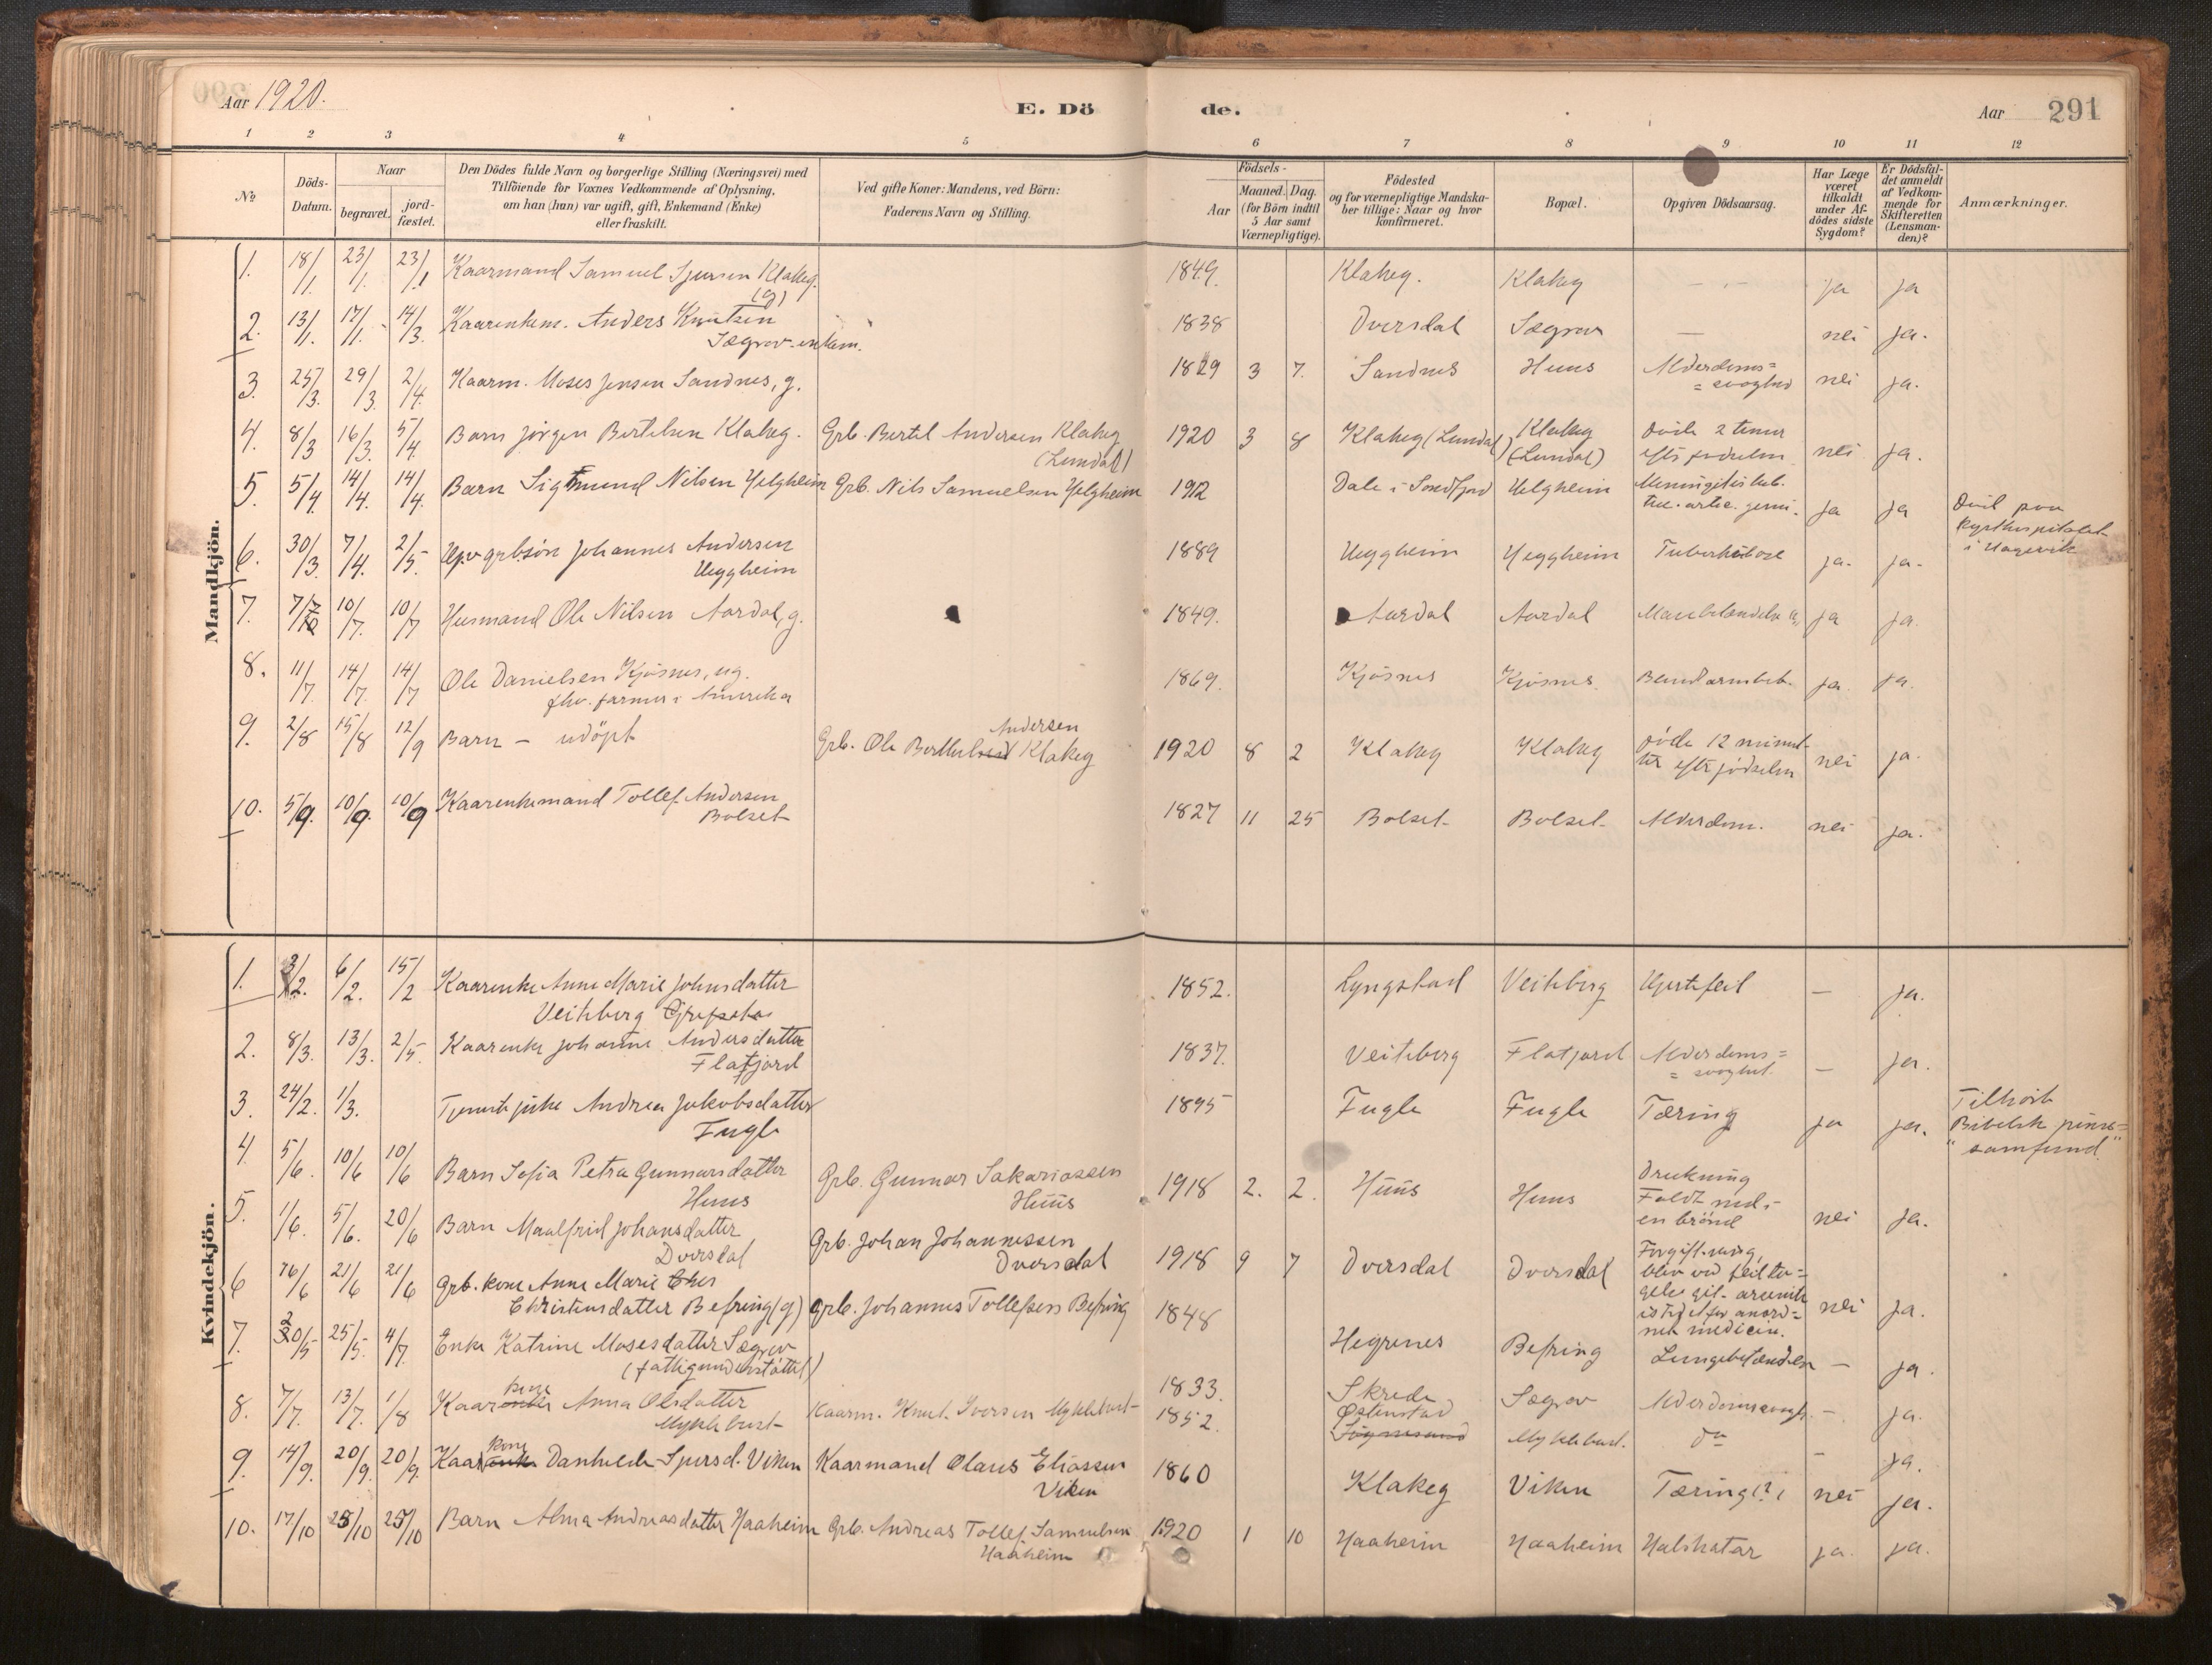 Aar 1920.
E. Dö
de.
Aar
291
1 2 3 4 5 6 7 8 9 10 11 12
No
Döds-Datum.
Naar
begravet.
jordfæstet.
Den Dödes fulde Navn og borgerlige Stilling (Næringsvei) med
Tilföiende for Voxnes Vedkommende af Oplysning,
om han (hun) var ugift, gift, Enkemand (Enke)
eller fraskilt.
Ved gifte Koner: Mandens, ved Börn:
Faderens Navn og Stilling.
Födsels-
Aar
Maaned. Dag.
(for Börn indtil
5 Aar samt
Værnepligtige).
Födested
og for værnepligtige Mandska-
ber tillige: Naar og hvor
konfirmeret.
Bopæl.
Opgiven Dödsaarsag.
Har Læge
været
tilkaldt
under Af-
dödes sidste
Sygdom?
Er Dödsfal-
det anmeldt
af Vedkom-
mende for
Skifteretten
(Lensman-
den)?
Anmærkninger.
Mandkjön.
1. 18/1. 23/1. 23/1 Kaarmand Samuel Sjursen Klakeg. (g) 1849. Klakeg. Klakeg — ja ja
2. 13/1. 17/1. 14/3. Kaarenkem. Anders Knutsen
Sægrov enkem. 1838 Dvergsdal Sægrov — nei ja.
3. 25/3. 29/3 2/4. Kaarm. Moses Jensen Sandnes, g. 1829 3 7. Sandnes Huus Alderdoms=
=svaghed nei ja.
4. 8/3 16/3. 5/4. Barn Jörgen Bertelsen Klakeg. Grb. Bertel Andersen Klakeg
(Lundal) 1920 3 8 Klakeg (Lundal) Klakeg
(Lundal) döde 2 timer
efter födselen nei ja.
5. 5/4 14/4. 14/4. Barn Sigmund Nilsen Helgheim Grb. Nils Samuelsen Helgheim 1912 Dale i Söndfjord Helgheim Meningitis tub.
ja ja Död paa
Kysthospitalet
i Hagevik
6. 30/3. 7/4. 2/5. Johannes Andersen
Heggheim 1889 Heggheim Heggheim Tuberkulose ja. ja.
7. 7/7 10/7. 10/7 Husmand Ole Nilsen Aardal, g. 1849. Aardal Aardal ja ja.
8. 11/7 14/7. 14/7 Ole Danielsen Kjösnes, ug.
fhv. farmer i Amerika 1869. Kjösnes Kjösnes. ja. ja.
9. 2/8 15/8 12/9 Barn — udöpt Grb. Ole Andersen Klakeg 1920 8 2 Klakeg Klakeg döde 12 minut-
ter efter födselen nei ja.
10. 5/9. 10/9. 10/9 Kaarenkemand Tollef Andersen
Bolset 1827 11 25 Bolset Bolset Alderdom. nei ja.
Kvindekjön.
1. 3/2. 6/2. 15/2 Kaarenke Anne Marie Johnsdatter
Veiteberg 1852. Lyngstad Veiteberg Hjertefeil — ja.
2. 8/3. 13/3. 2/5. Kaarenke Johanne Andersdatter
Flatjord 1837. Veiteberg Flatjord Alderdoms=
=svaghed. — ja.
3. 24/2. 1/3. Tjenestepike Andrea Jakobsdatter
Fugle 1895 Fugle Fugle Tæring ja ja. Tilhörte
Bibelsk
samfund"
4. 5/6. 10/6 10/6 Barn Sofia Petra Gunnarsdatter
Huus Grb. Gunnar Sakariassen
Huus 1918 2. 2. Huus Huus Drukning
Faldt ned i
en brönd nei ja.
5. 1/6. 5/6. 20/6 Barn Maalfrid Johansdatter
Dvergsdal Grb. Johan Johannessen
Dvergsdal 1918 9 7 Dvergsdal Dvergsdal Forgiftning,
blev ved feiltagelse git arsenik
istedet for anord-
net medicin. nei ja.
6 16/6 21/6 21/6 Grb. kone Anne Marie
Christensdatter Befring (g) Grb. Johannes Tollefsen Befring 1848 Hegrenes Befring Lungebetændelse — ja.
7. 20/5 25/5. 4/7. Enke Katrine Mosesdatter Sægrov
(fattigunderstöttet) 1833. Skrede Sægrov Alderdomssvagh. — ja.
8. 7/7. 13/7. 1/8 Kaarkone Anna Olsdatter
Myklebust Kaarm. Knut Iversen Myklebust 1852. Östenstad
Myklebust. do — ja.
9. 14/9. 20/9. 20/9. Kaarkone Danhilde Sjursd. Viken Kaarmand Olaus Eliassen
Viken 1860 Klakeg Viken Tæring (?) nei ja.
10. 17/10 25/10 25/10 Barn Alma Andreasdatter Haaheim Grb. Andreas Tollef Samuelsen
Haaheim 1920 1 10 Haaheim Haaheim Halskatar ja. ja.